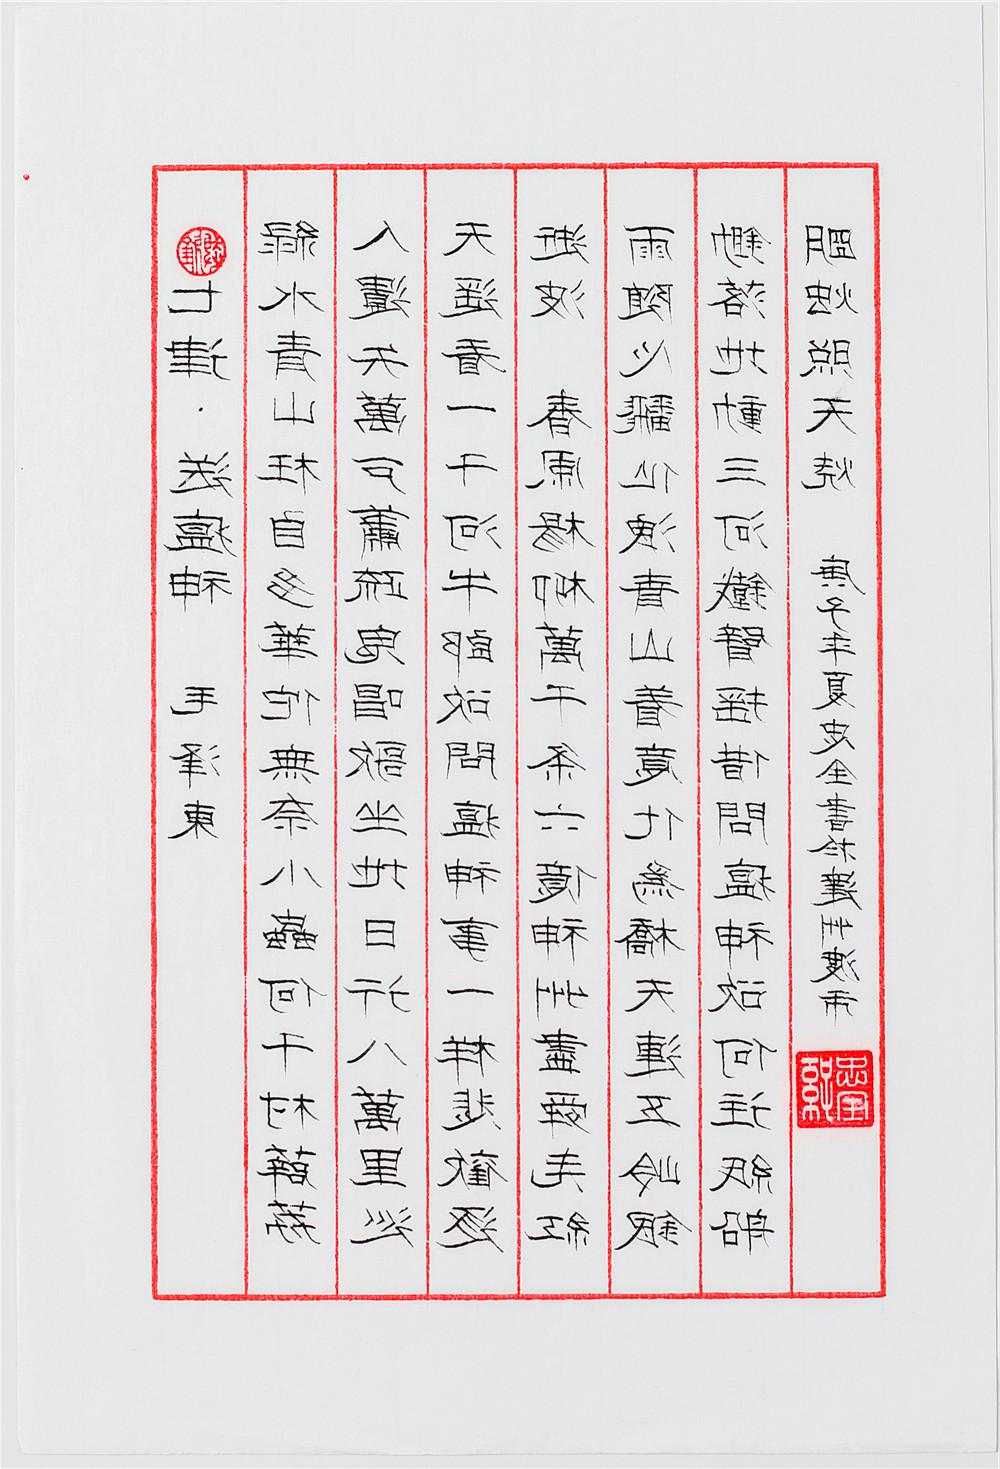 七律·送瘟神 毛澤東
綠水青山枉自多華佗無奈小蟲何千村薜荔
人遺矢萬戶蕭疏鬼唱歌坐地日行八萬里巡
天遙看一千河牛郎欲問瘟神事一样悲歡逐
逝波 春風楊柳萬千条六億神州盡舜堯紅
雨隨心飜作浪青山着意化為橋天連五嶺銀
鋤落地動三河鐵臂摇借問瘟神欲何往紙船
明烛照天烧 庚子年夏忠全書於達州渡市